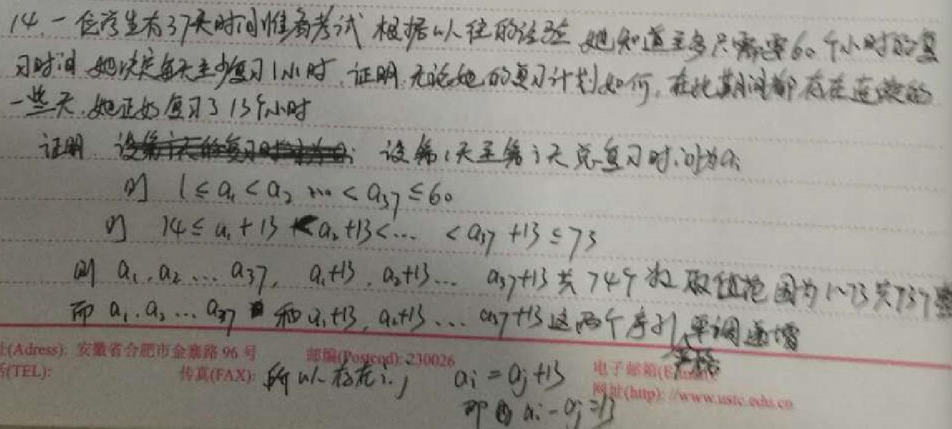 14. 一位学生有37天时间准备考试 根据以往的经验 她知道至多只需要60个小时的复
习时间 她决定每天至少复习1小时. 证明. 无论她的复习计划如何, 在此期间都存在连续的
一些天, 她正好复习了13个小时
证明 设第i天的复习时间为a; 设第1天至第i天总复习时间为aᵢ
则 1≤a₁<a₂ … <a₃₇≤60
则 14≤a₁+13<a₂+13<… <a₃₇+13≤73
则 a₁,a₂…a₃₇, a₁+13,a₂+13… a₃₇+13共74个数 取值范围为1~73共73个整
而 a₁.a₂…a₃₇ 和a₁+13,a₂+13…a₃₇+13这两个序列 严格 单调递增
(Adress): 安徽省合肥市金寨路 96 号 邮编(Postcod): 230026
(TEL): 传真(FAX): 所以存在i,j aᵢ=aⱼ+13 电子邮箱
即 aᵢ-aⱼ=13 网址(http): //www.ustc.edu.cn